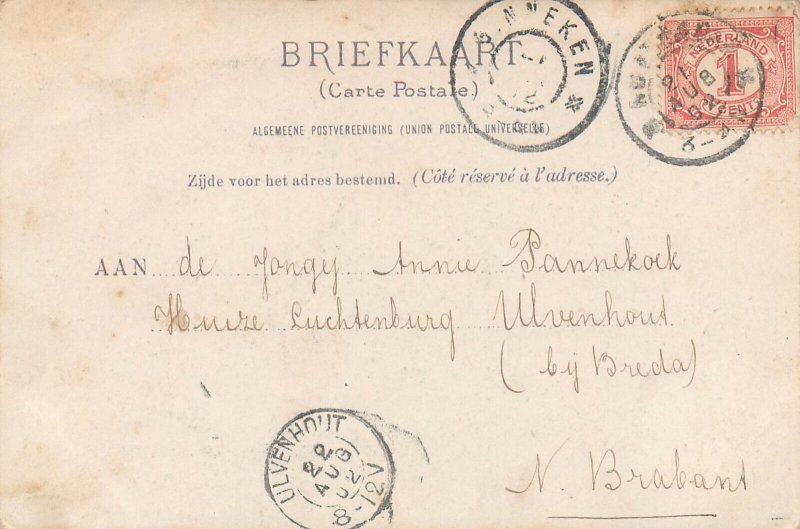 BRIEFKAART
(Carte Postale)
ALGEMEENE POSTVEREENIGING (UNION POSTALE UNIVERSELLE)
Zijde voor het adres bestemd. (Côté réservé à l'adresse.)
NEDERLAND
1
CENT
AUG
AAN de Jongej Annie Pannekoek
Huize Luchtenburg Ulvenhout
(bij Breda)
N. Brabant
ULVENHOUT
22
AUG
02
8-12V